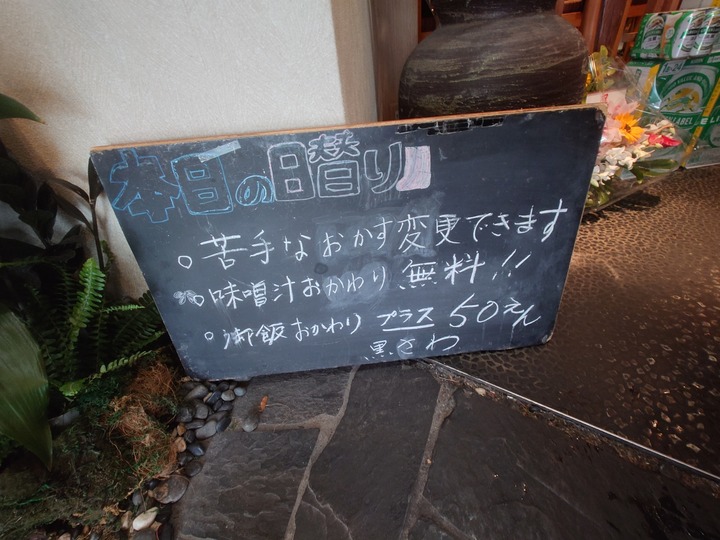 本日の日替り
○ 苦手なおかず変更できます
○ 味噌汁おかわり 無料!!
○ 御飯おかわり プラス 50えん
黒さわ
LABEL